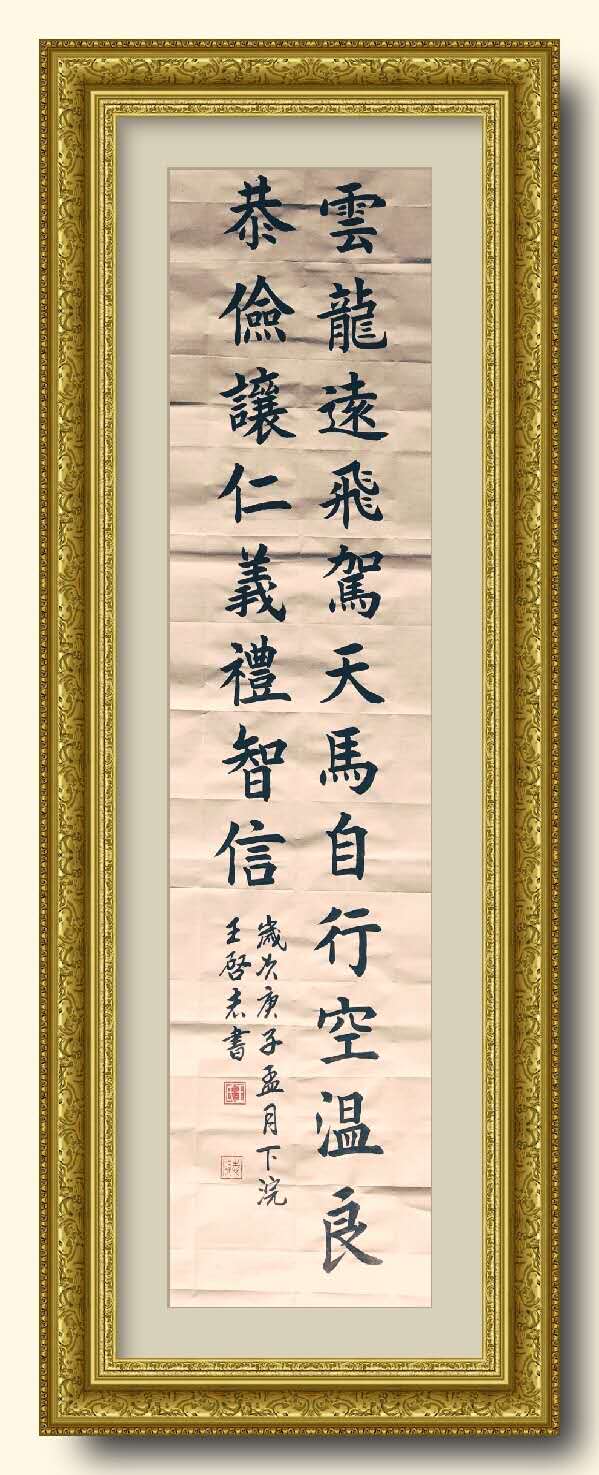 雲龍遠飛駕天馬自行空温良
恭儉讓仁義禮智信
歲次庚子孟月下浣
王啓志書